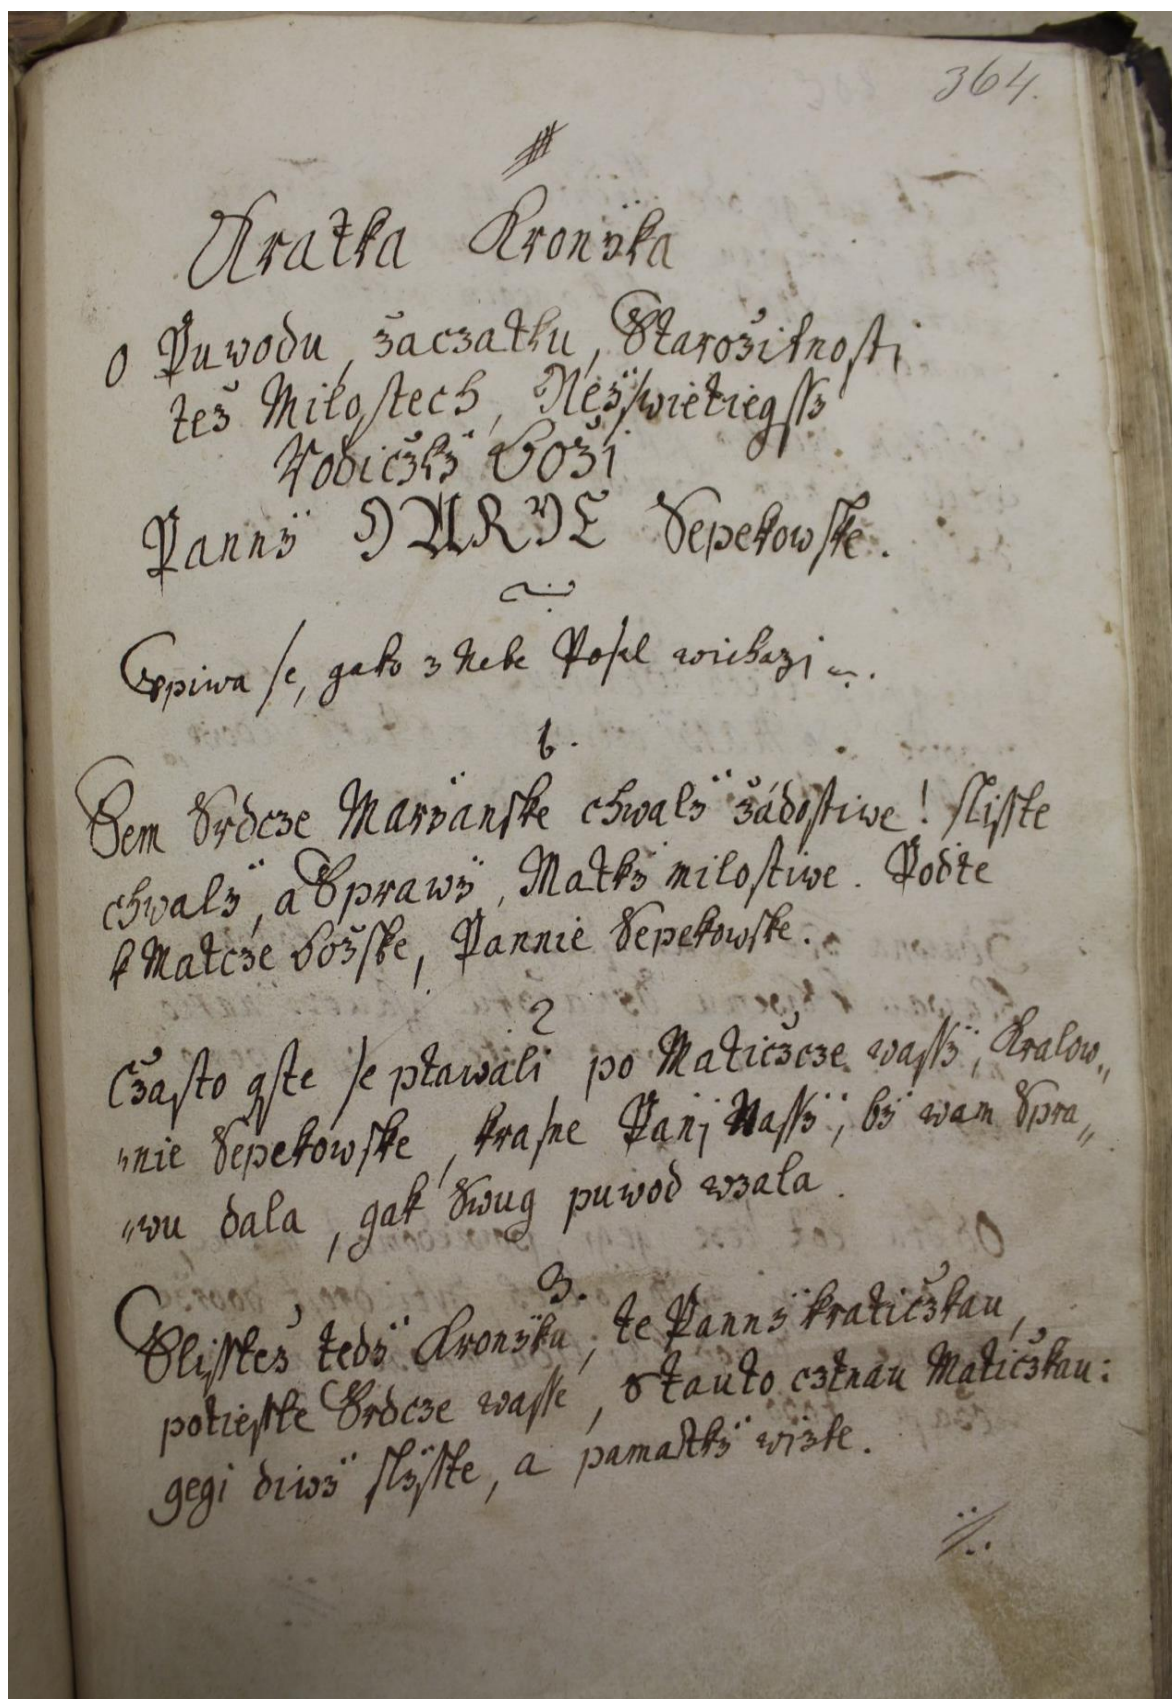 364.
Kratka Kronÿka
o Puwodu, začzatku, Starožitnosti
tež Milostech, Neÿswietiegssÿ
Rodičzkÿ Boži
Pannÿ MARYE Sepekowske.
Spiwa se, gako z Nebe Posel wichazÿ
1.
Sem Srdcze Marÿanske chwalÿ žádostiwe! slisste
chwalÿ, a Sprawÿ, Matkÿ milostiwe. Poďte
k Matcze božske, Pannie Sepekowske.
2
Čzasto gste se ptawali po Matičzcze wassÿ, Kralow„
„nie Sepekowske, krasne Panj Nassÿ, bÿ wam Spra„
„wu dala, gak Swug puwod wzala.
3.
Slisstež tedÿ Kronÿku, te Pannÿ kratičzkau,
potiesste Srdcze wasse, s tauto cztnau Matičzkau:
gegi diwÿ slÿsste, a pamatkÿ wizte.